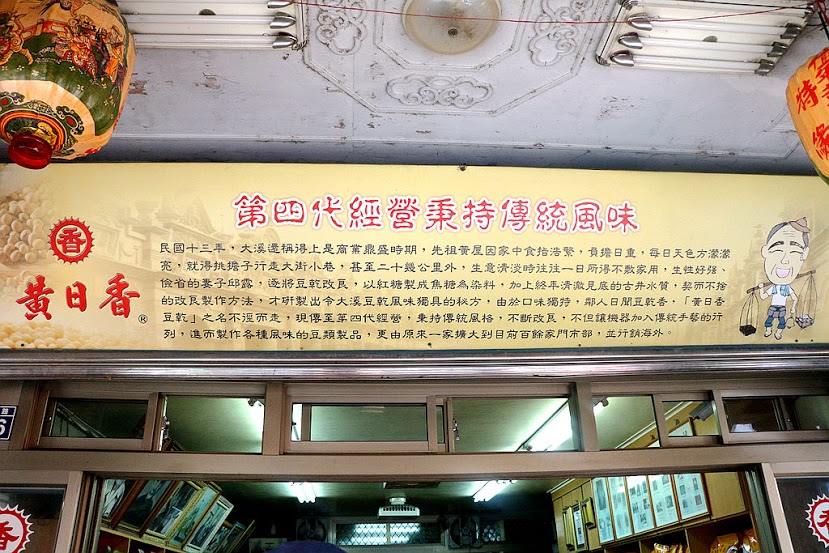 第四代經營秉持傳統風味
香
黃日香®
民國十三年，大溪還稱得上是商業鼎盛時期，先祖黃屋因家中食指浩繁，負擔日重，每日天色方濛濛
亮，就得挑擔子行走大街小巷，甚至二十幾公里外，生意清淡時往往一日所得不敷家用，生性好強、
儉省的妻子邱露，逐將豆乾改良，以紅糖製成焦糖為染料，加上終年清澈見底的古井水質，契而不捨
的改良製作方法，才研製出令大溪豆乾風味獨具的秘方，由於口味獨特，鄰人日聞豆乾香，「黃日香
豆乾」之名不逕而走，現傳至第四代經營，秉持傳統風格，不斷改良，不但讓機器加入傳統手藝的行
列，進而製作各種風味的豆類製品，更由原來一家擴大到目前百餘家門市部，並行銷海外。
香
香